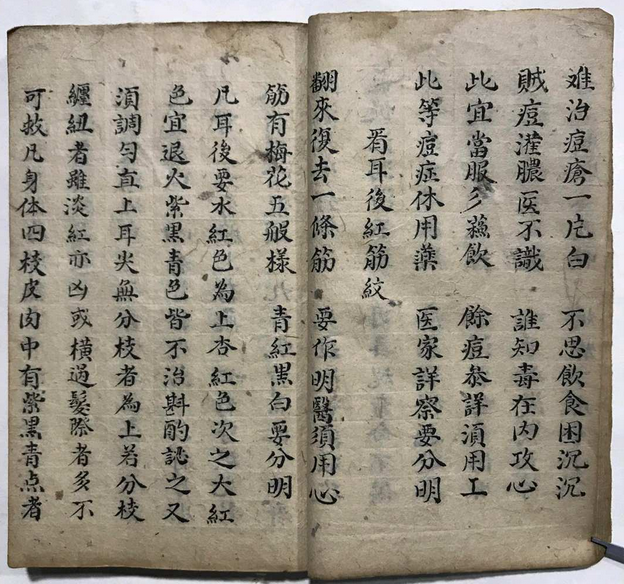 难治痘瘡一庀白　不思飲食困沉沉
賊痘灌膿医不識　誰知毒在内攻心
此宜當服多蘓飲　餘痘叅詳須用工
此等痘症休用藥　医家詳察要分明
看耳後紅筋紋
翻來復去一條筋　要作明醫須用心
筋有梅花五般様　青紅黑白要分明
凡耳後要水紅色為上杏紅色次之大紅
色宜退火紫黑青色皆不治斟酌認之又
須調匀直上耳尖無分枝者為上若分枝
纒紐者雖淡紅亦凶或横過髮際者多不
可救凡身体四枝皮肉中有紫黑青点者